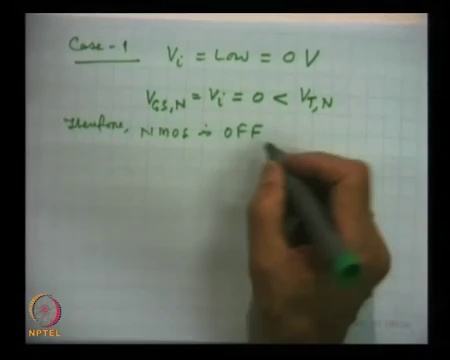 Case-1 V_i = Low = 0 V
V_GS,N = V_i = 0 < V_T,N
Therefore, NMOS is OFF
NPTEL